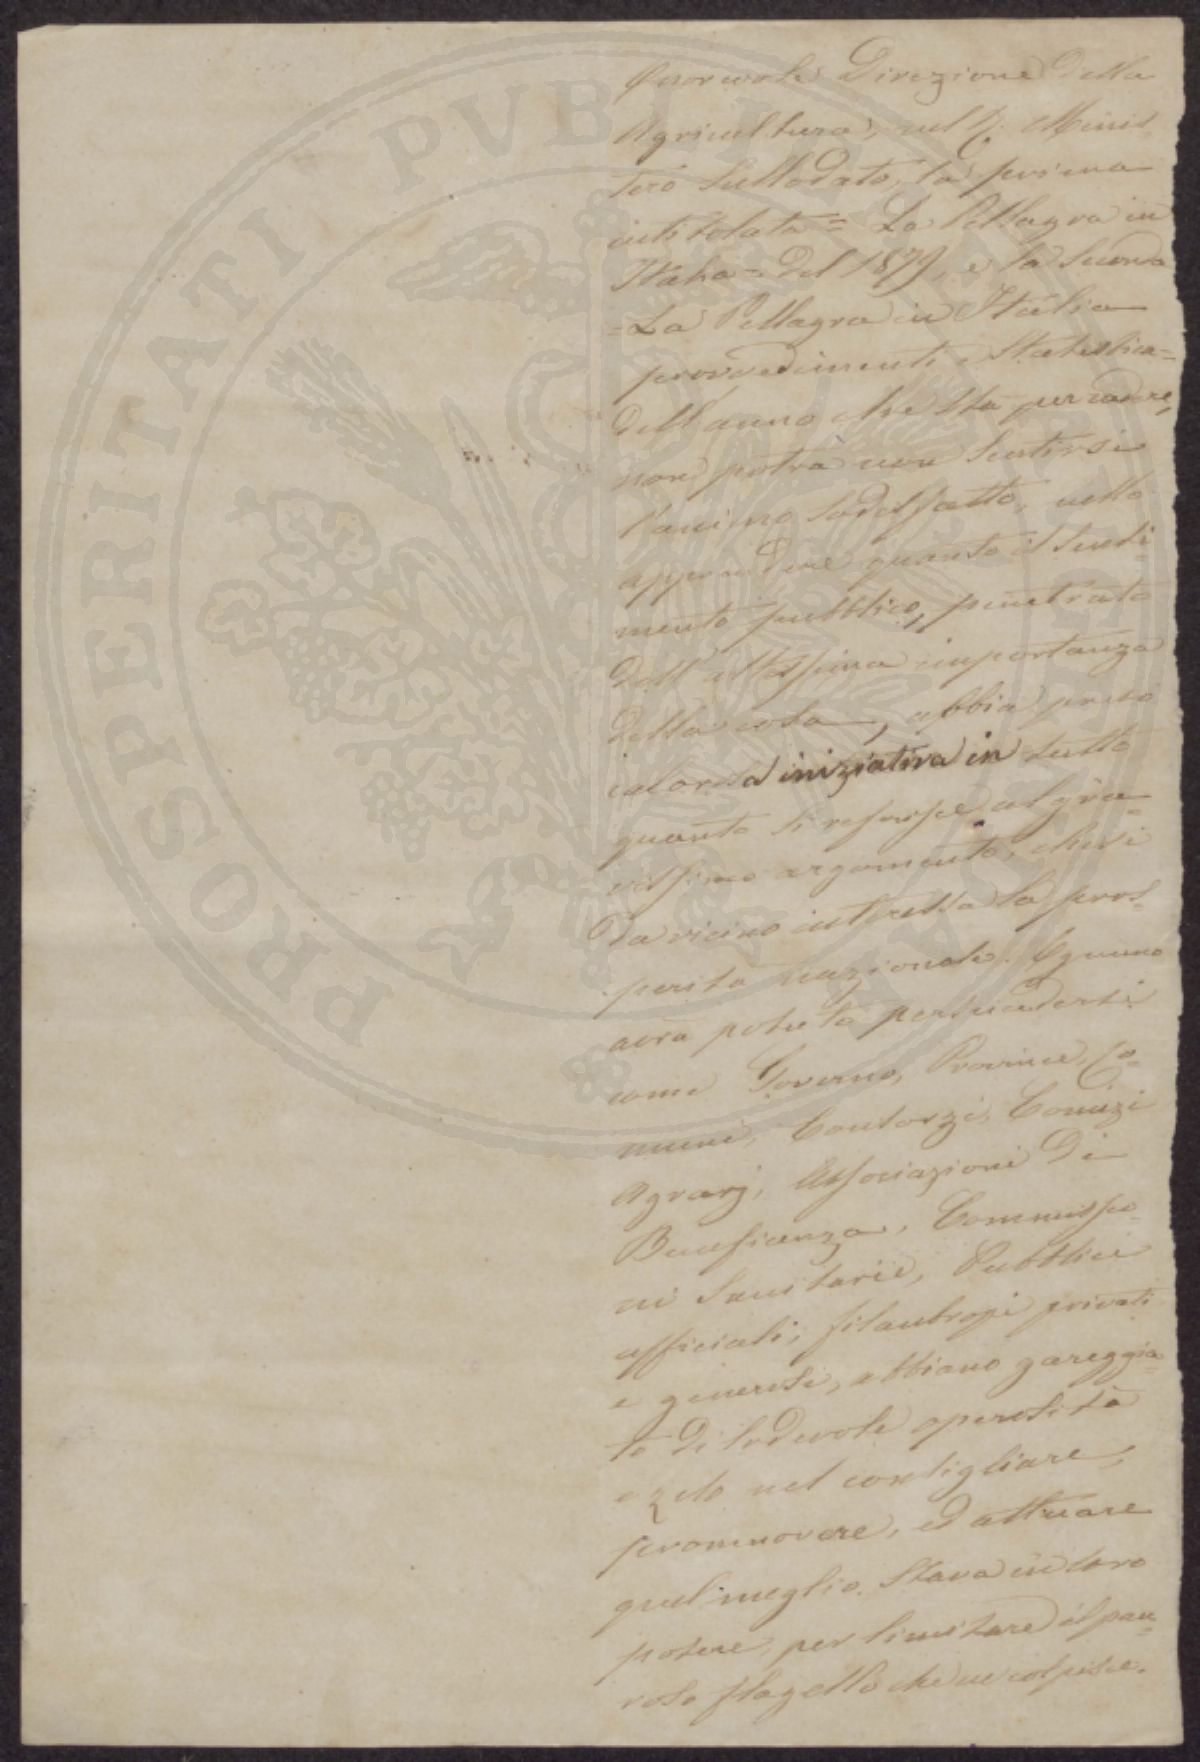 Onorevole Direzione della
Agricoltura, nel R. Minis-
tero sullodato, la prima
intitolata = La Pellagra in
Italia = del 1879, e la seconda
= La Pellagra in Italia
provvedimenti e Statistica =
dell'anno che sta per cadere,
non potrà non sentirsi
l'animo sodisfatto, nello
apprendere quanto il senti-
mento pubblico, penetrato
dall'altissima importanza
della cosa, abbia preso
calorosa iniziativa in tutto
quanto si riferisce al gra-
vissimo argomento, che sì
da vicino interessa la pros-
perità nazionale. Ognuno
avrà potuto persuadersi
come Governo, Province, Co-
muni, Consorzi, Comizi
Agrarj, Associazioni di
Beneficenza, Commissio-
ni Sanitarie, Pubblici
officiali, filantropi privati
e generosi, abbiano gareggia-
to di lodevole operosità
e zelo nel consigliare,
promuovere, ed attuare
quel meglio stava in loro
potere, per limitare il pau-
roso flagello che ne colpisce.
PROSPERITATI PVBLICAE